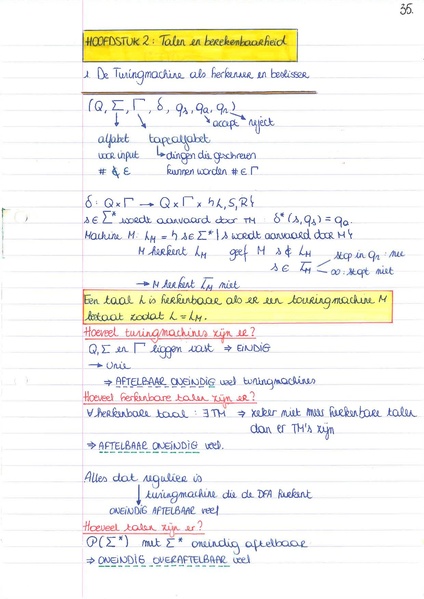 35.
HOOFDSTUK 2: Talen en berekenbaarheid
1 De Turingmachine als herkenner en beslisser
(Q, Σ, Γ, δ, qs, qa, qr)
accept reject
alfabet tape alfabet
voor input ↳ dingen die geschreven
# ∉ Σ kunnen worden # ∈ Γ
δ: Q × Γ → Q × Γ × {L, S, R}
s ∈ Σ* wordt aanvaard door TM: δ*(s, qs) = qa
Machine M: L_M = {s ∈ Σ* | s wordt aanvaard door M}
M herkent L_M geef M s ∉ L_M stop in qr: nee
s ∈ L̅_M ∞: stopt niet
→ M herkent L̅_M niet
Een taal L is herkenbaar als er een touringmachine M
bestaat zodat L = L_M.
Hoeveel turingmachines zijn er?
Q, Σ en Γ liggen vast ⇒ EINDIG
→ Unie
⇒ AFTELBAAR ONEINDIG veel turingmachines
Hoeveel herkenbare talen zijn er?
∀ herkenbare taal: ∃ TM ⇒ zeker niet meer herkenbare talen
dan er TM's zijn
⇒ AFTELBAAR ONEINDIG veel.
Alles dat regulier is
↓ turingmachine die de DFA herkent
ONEINDIG AFTELBAAR veel
Hoeveel talen zijn er?
P(Σ*) met Σ* oneindig aftelbaar
⇒ ONEINDIG OVERAFTELBAAR veel